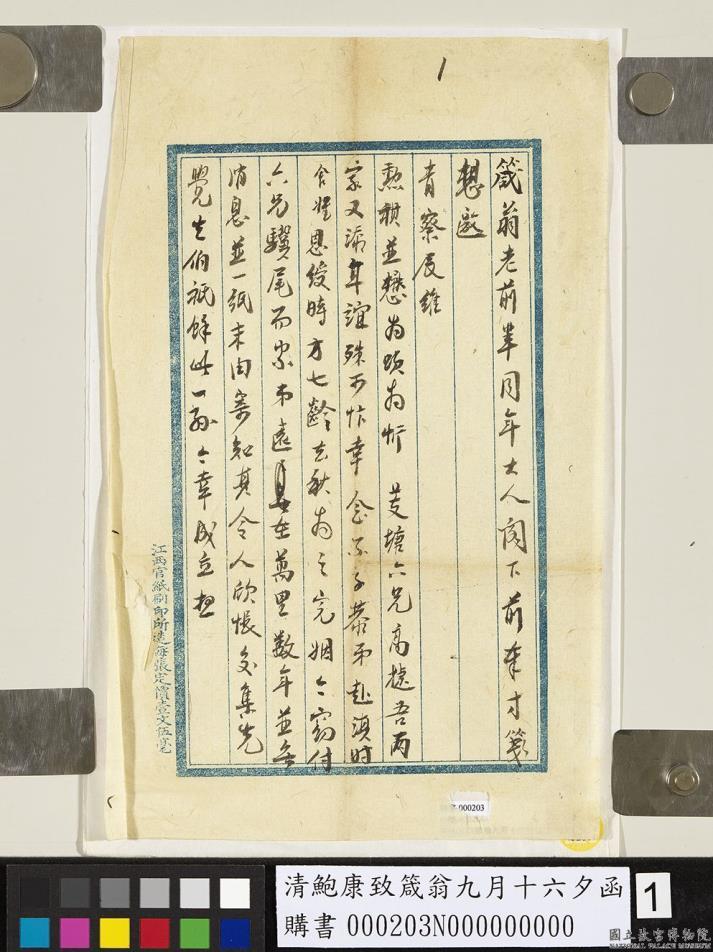 1
箴翁老前輩同年大人閣下前奉寸箋
想邀
青察辰維
勳祺並懋為頌為忻 芰塘六兄高捷吾兩
家又添年誼殊可忭幸 念不子恭弟赴滇時
舍姪恩綬時方七齡去秋為之完姻今竊付
六兄驥尾而家弟遠在萬里數年並無
消息並一紙未由寄知其令人欣悵交集先
覺生伯祇餘此一孫今幸成立想
江西官紙刷印所造每張定價壹文伍毫
000203
清鮑康致箴翁九月十六夕函
購書 000203N000000000
1
國立故宮博物院
NATIONAL PALACE MUSEUM